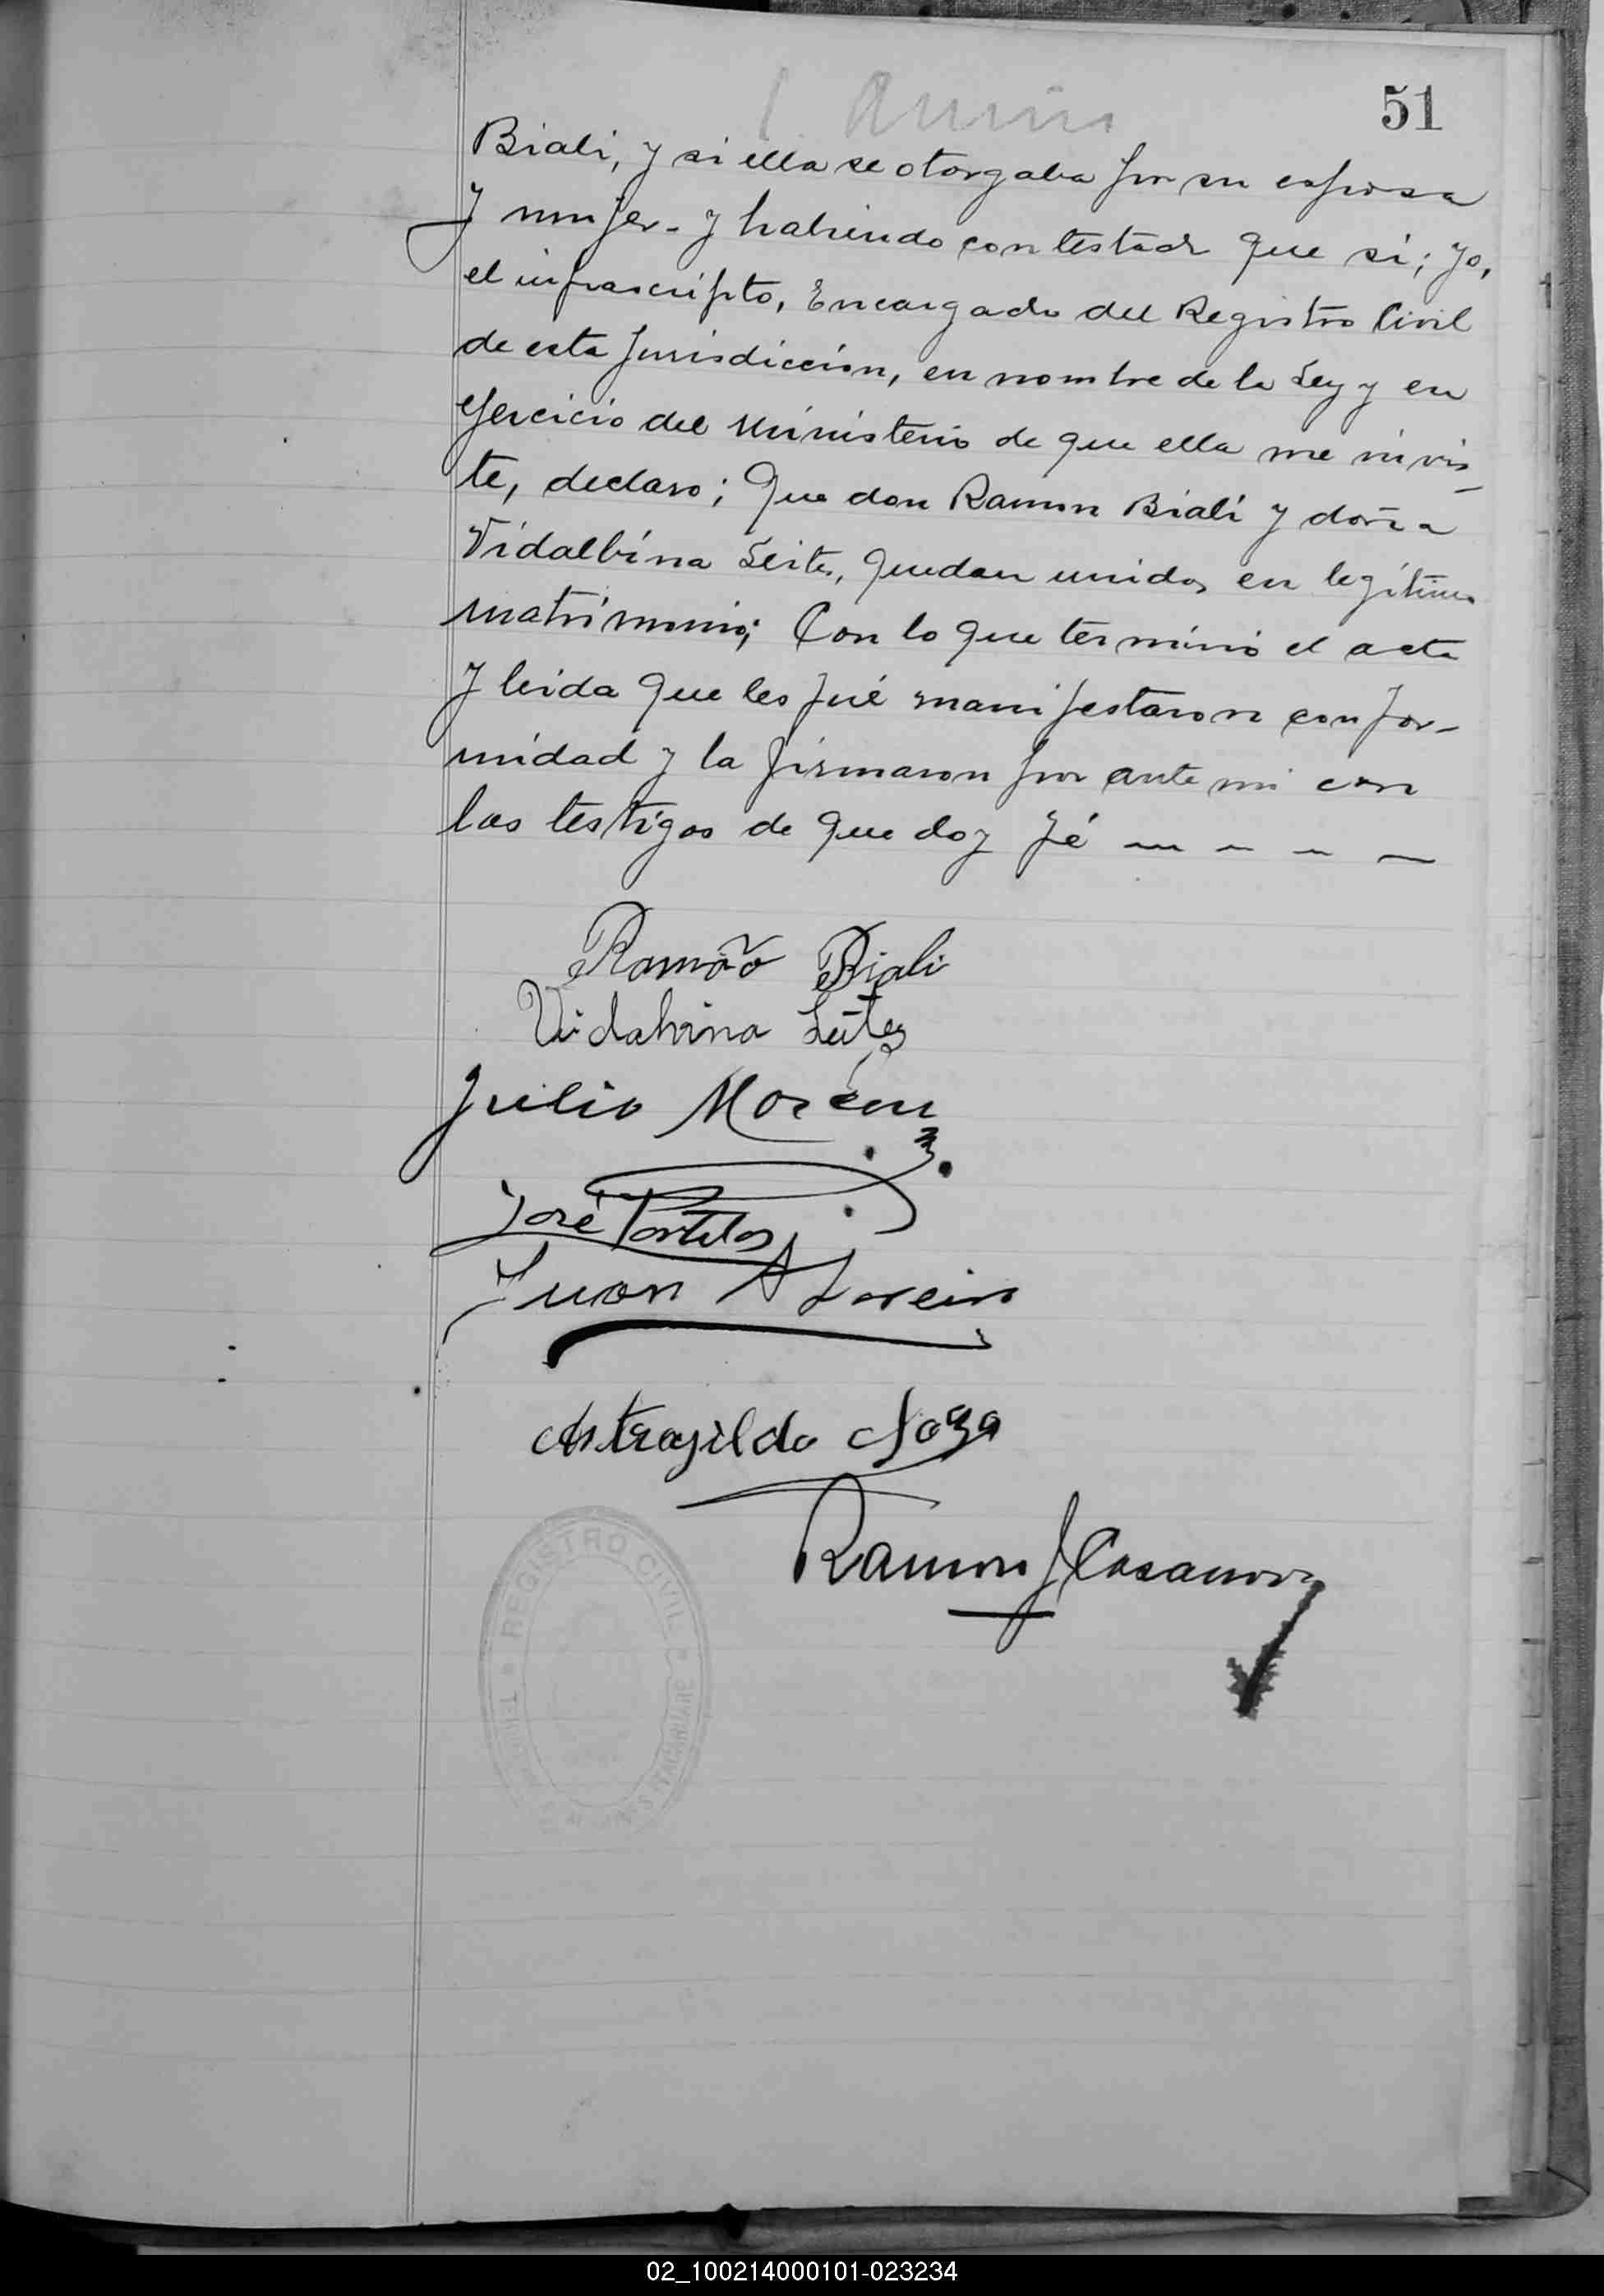 51
Biali, y si ella se otorgaba por su esposa
y mujer. y habiendo contestado que si; yo,
el infrascripto, Encargado del Registro Civil
de esta Jurisdiccion, en nombre de la Ley y en
ejercicio del Ministerio de que ella me invis-
te, declaro; Que don Ramon Biali y doña
Vidalbina Leites, quedan unidos en legítimo
matrimonio; Con lo que terminó el acta
y leida que les fué manifestaron confor-
midad y la firmaron por ante mi con
los testigos de que doy fé
Ramão Biali
Vidalvina Leites
Julio Moreau
José Portelos
Juan A Loreiro
Astrogildo Noga
Ramon J Casanova
REGISTRO CIVIL
02_100214000101-023234